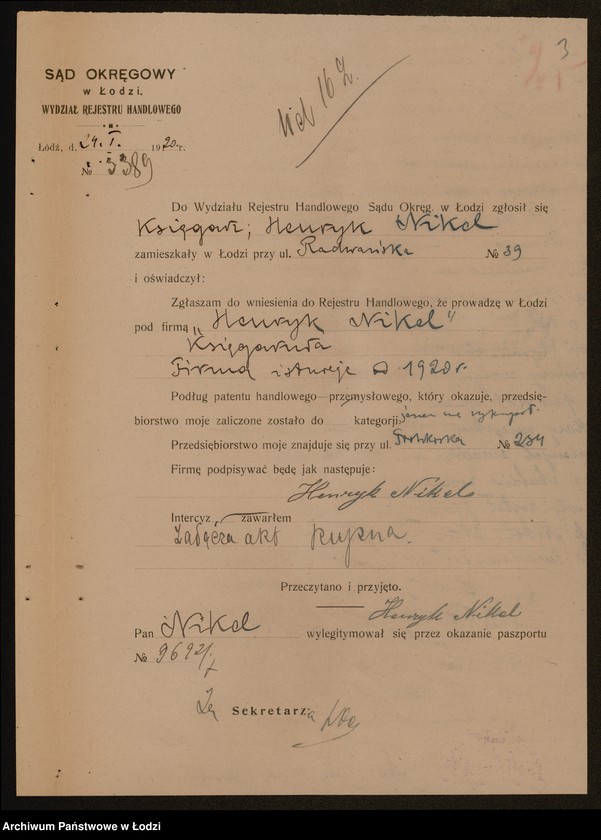 3
SĄD OKRĘGOWY
w Łodzi.
WYDZIAŁ REJESTRU HANDLOWEGO
Łódź, d. 24. I. 1920 r.
№ 3389
Do Wydziału Rejestru Handlowego Sądu Okręg. w Łodzi zgłosił się
Księgarz; Henryk Nikel
zamieszkały w Łodzi przy ul. Radwańska № 39
i oświadczył:
Zgłaszam do wniesienia do Rejestru Handlowego, że prowadzę w Łodzi
pod firmą „Henryk Nikel"
Księgarnia
Firma istnieje od 1920 r.
Podług patentu handlowego—przemysłowego, który okazuje, przedsię-
biorstwo moje zaliczone zostało do kategorji, jeszcze nie wykupił.
Przedsiębiorstwo moje znajduje się przy ul. Piotrkowska № 234
Firmę podpisywać będę jak następuje:
Henryk Nikel
Intercyz zawarłem
Załącza akt kupna.
Przeczytano i przyjęto.
Henryk Nikel
Pan Nikel wylegitymował się przez okazanie paszportu
№ 9692/
Za Sekretarza
Archiwum Państwowe w Łodzi